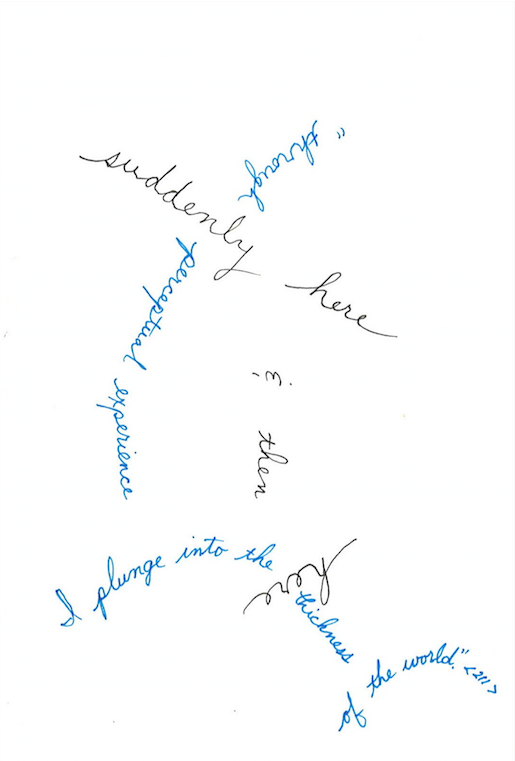 suddenly here
& then
here
"through
perceptual experience
I plunge into the thickness
of the world." <211>